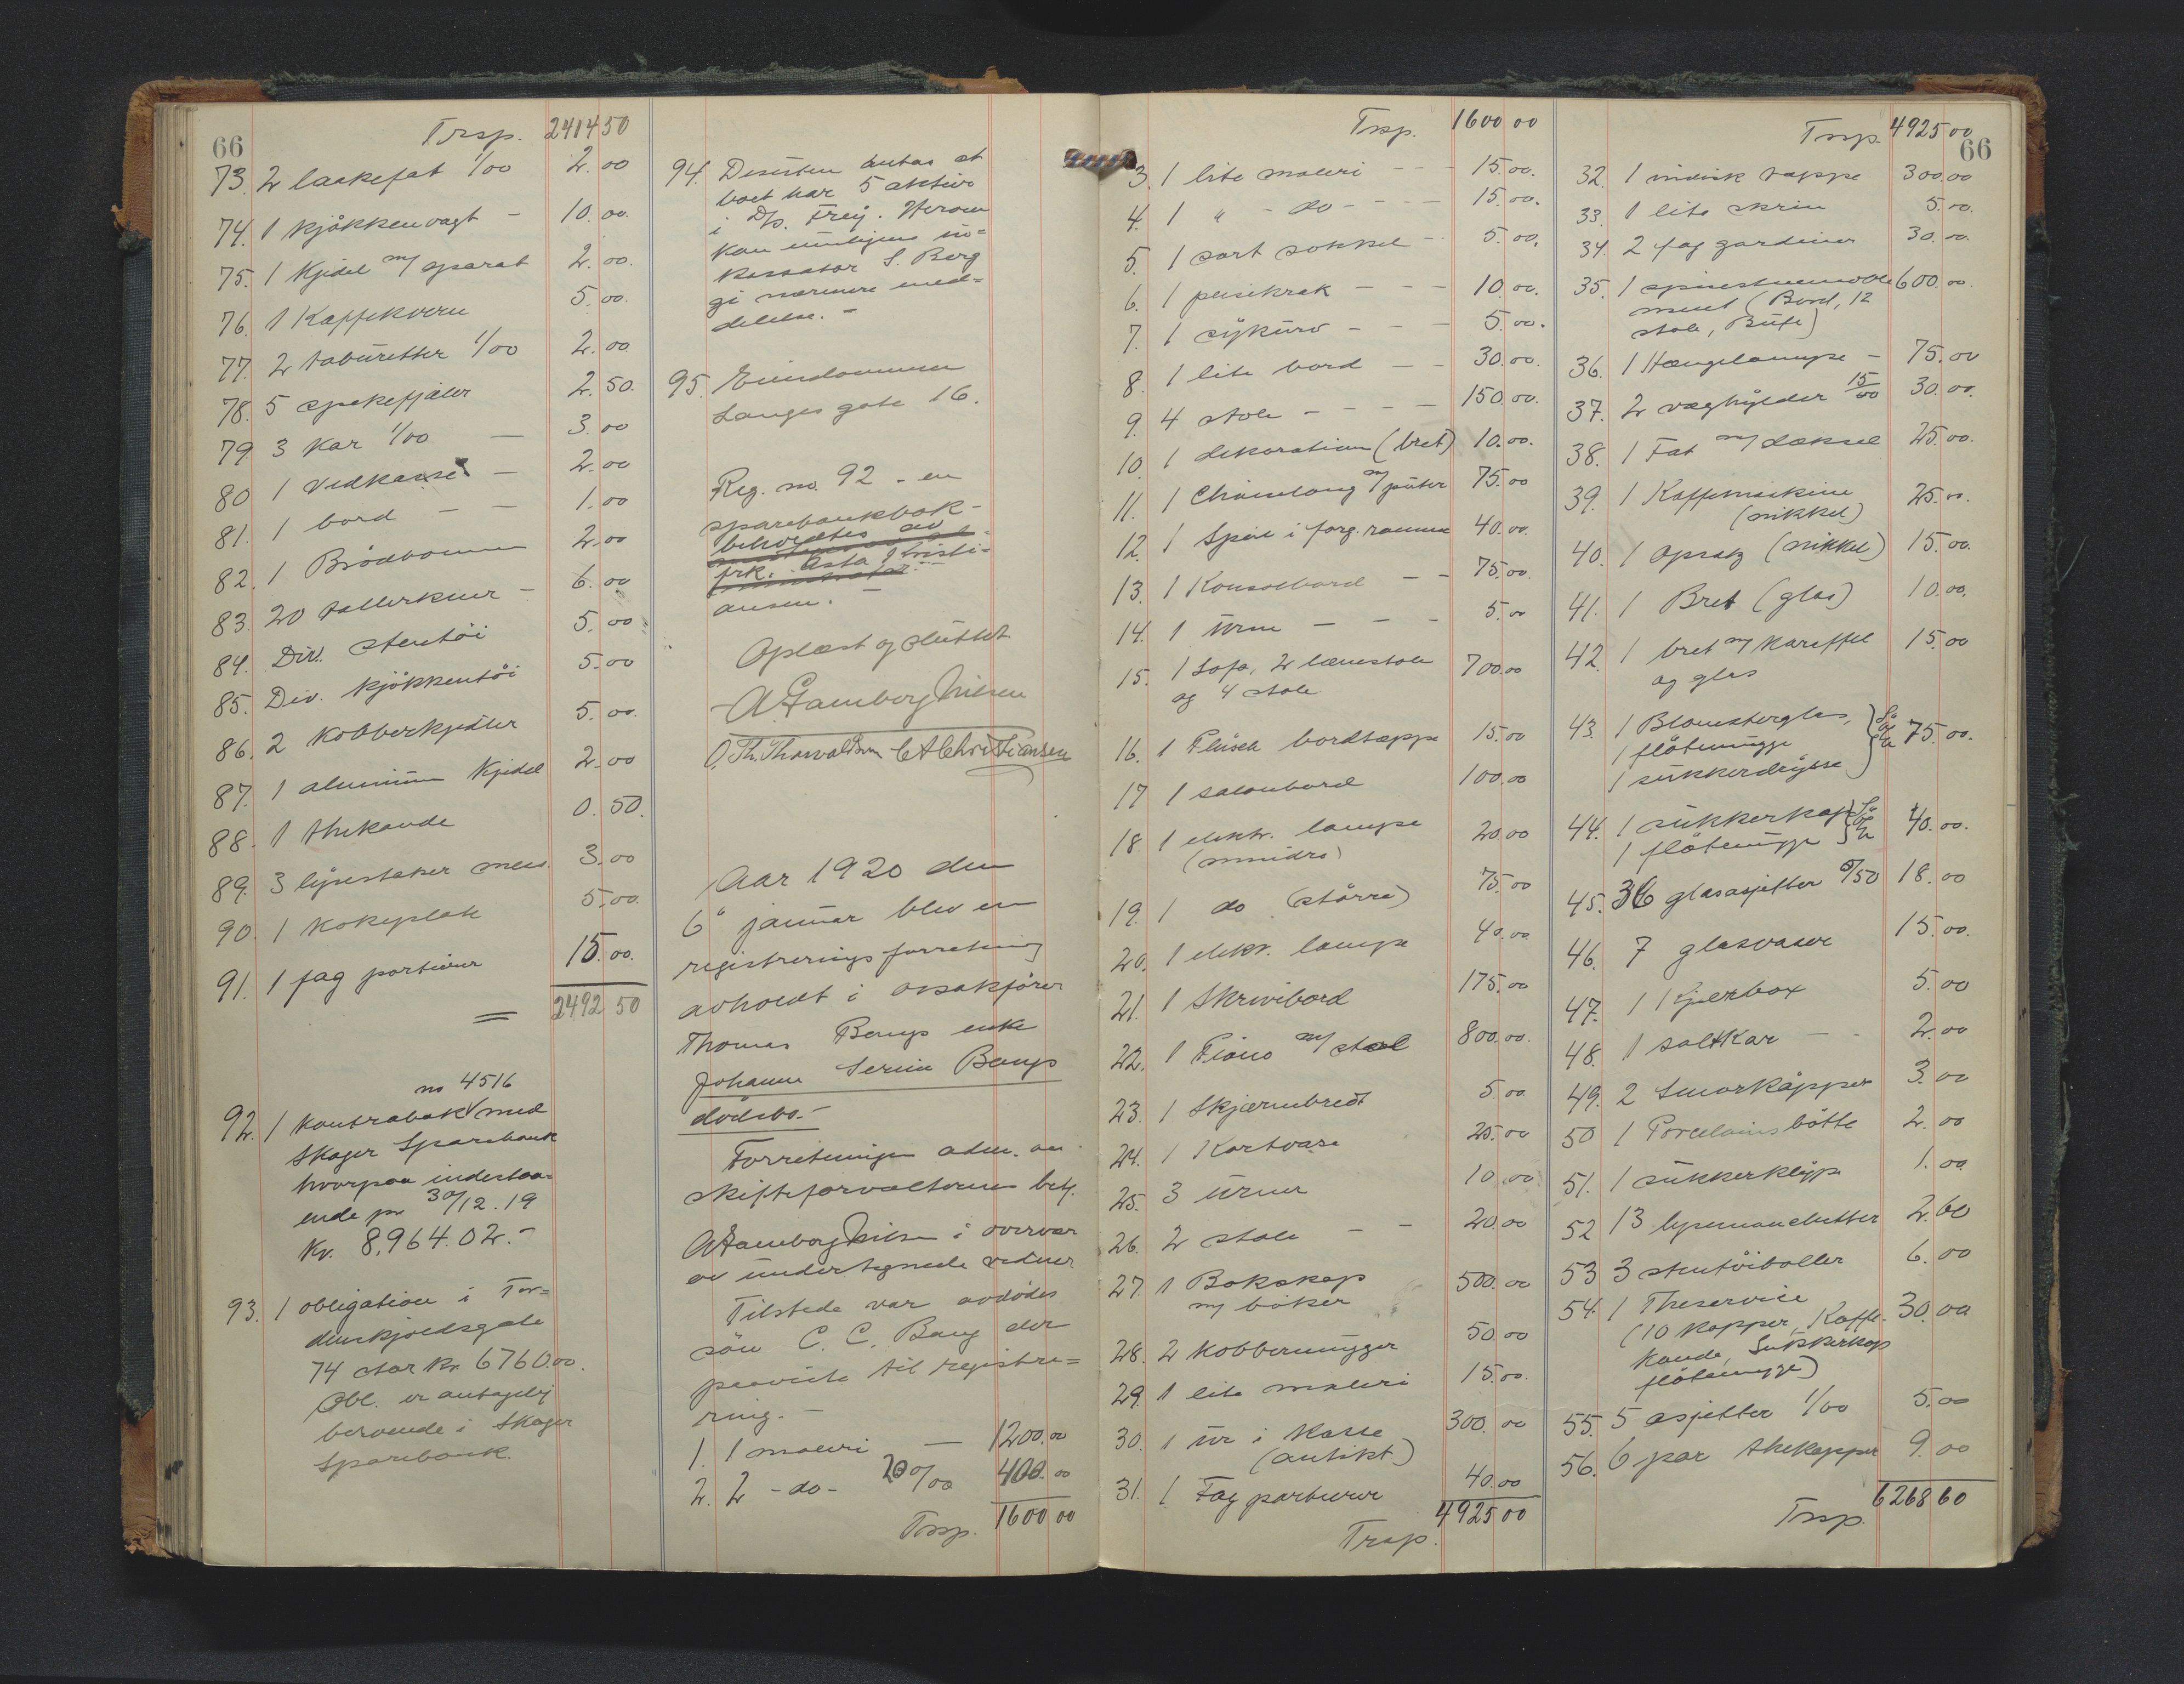 66
Trsp. 2414 50
73. 2 laakefat 1/00 2.00
74. 1 kjøkkenvagt - 10.00.
75. 1 Kjedel m/ aparat 2.00.
76. 1 Kaffekvern 5.00.
77. 2 taburetter 1/00 2.00
78. 5 spekefjæler 2.50.
79. 3 Kar 1/00 — 3.00
80 1 Vedkasse - 2.00
81. 1 bord - - 1.00
82. 1 Brödbommen 2.00
83. 20 tallerkner - 6.00
84. Div. stentöi 5.00
85. Div. kjökkentöi 5.00
86. 2 Kobberkjedler 5.00.
87. 1 aluminium Kjedel 2.00
88. 1 thekande 0.50.
89. 3 lysestaker mess. 3.00
90. 1 Kokeplate 5.00.
91. 1 fag portierer 15.00.
= 2492 50
no 4516
92. 1 Kontrabok med
Skoger Sparebank
hvorpaa indestaa-
ende pr 30/12.19
Kr. 8,964.02.-
93. 1 obligation i Tor-
denskjoldsgate
74 stor kr. 6760.00.
Obl. er antagelig
beroende i Skoger
Sparebank.
94. Desuten antas at
boet har 5 aktier
i D/S. Frey. Herom
kan muligens in-
kassator S. Berg
gi nærmere med-
delelse. -
95. Eiendommen
Langes gate 16.
Reg. no. 92 - en
sparebankbok -
beholdtes av
frk. Asta Christi-
ansen. -
Oplæst og sluttet
A. Hamborg Nilsen
O. Th. Thorvaldsen C A Christiansen
Aar 1920 den
6' januar blev en
registreringsforretning
avholdt i ovsakfører
Thomas Bangs enke
Johanne Serine Bangs
dödsbo.-
Forretningen adm. av
skifteforvalteren bety.
A Hamborg Nilsen i overvær
av undertegnede vidner
Tilstede var avdödes
sön C. C. Bang der
paaviste til registre-
ring. -
1. 1 maleri — 1200.00
2. 2 -do- 200/00 400.00
Trsp. 1600 00
Trsp. 1600 00
3. 1 lite maleri - - - 15.00.
4. 1 " - do - - - - 15.00.
5. 1 sort sokkel - - 5.00.
6. 1 peisekrak - - - 10.00.
7. 1 sykurv - - - 5.00.
8. 1 lite bord - - 30.00.
9. 4 stole - - - - 150.00.
10. 1 dekoration (bret) 10.00.
11. 1 Chaiselong m/ puter 75.00
12. 1 Speil i forg. ramme 40.00.
13. 1 Konsolbord - - 75.00.
14. 1 Urne - - - 5.00
15. 1 Sofa, 2 lænestole 700.00
og 4 stole
16. 1 Plüsch bordtæppe 15.00
17 1 salonbord 100.00
18. 1 elektr. lampe 20.00
(mindre)
19. 1 do (större) 75.00
20. 1 elektr. lampe 40.00
21. 1 Skrivebord 175.00
22. 1 Piano m/ stol 800.00.
23. 1 Skjermbredt 5.00.
24. 1 Kortvase 25.00
25. 3 Urner 10.00
26. 2 stole - - 20.00
27. 1 Bokskap 500.00
m/ böker
28. 2 Kobbermugger 50.00
29. 1 lite maleri 15.00.
30. 1 ur i Kasse 300.00
(antikt.)
31. 1 Fag portierer 40.00
Trsp. 4925 00
Trsp. 4925 00
66
32. 1 indisk tæppe 300.00
33. 1 lite skrin 5.00.
34. 2 fag gardiner 30.00.
35. 1 spisestuemöble- 600.00.
ment (Bord, 12
stole, Bufe)
36. 1 Hængelampe - 75.00
37. 2 væghylder 15/00 30.00.
38. 1 Fat m/ dæksel 25.00.
39. 1 Kaffemaskine 25.00.
(nikkel)
40. 1 Opsatz (nikkel) 15.00.
41. 1 Bret (glas) 10.00.
42. 1 bret m/ Karaffel 15.00
og glas
43. 1 Blomsterglas, Sölv 75.00.
1 flötemugge
1 sukkerdrysse
44. 1 sukkerkop Sölv 40.00.
1 flötemugge
45. 36 glasasjetter 0/50 18.00
46. 7 glasvaser 15.00.
47. 1 Kjexbox 5.00
48. 1 saltkar - - 2.00
49. 2 Smörkopper 3.00
50 1 Porcelainsbötte 2.00
51. 1 sukkerklype 1.00
52 13 lysemanchetter 2.60
53 3 stentöiboller 6.00
54. 1 Theservice 30.00
(10 Kopper, Kaffe-
kande, Sukkerkop
flötemugge)
55. 5 asjetter 1/00 5.00
56. 6 par thekopper 9.00
Trsp. 6268 60